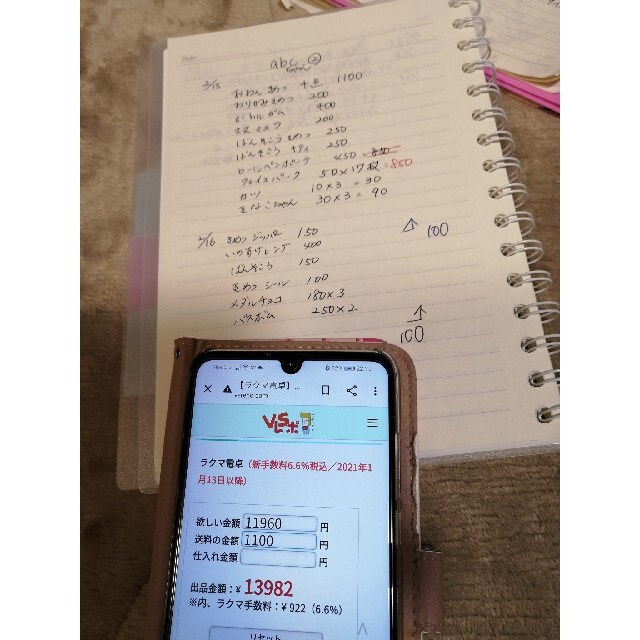 abc
ちゃん ②
2/15 おわん きめつ 十点 1100
おりがみきめつ 200
ボトルガム 400
マスク 200
ばんそこうきめつ 250
ばんそこう キティ 250
ロールペンポーチ 450
フェイスパック 50×17枚 =850
ガツ 10×3 = 30
きなこちゃん 30×3 = 90
2/16 きめつ ジッパー 150
いのすけレンゲ 400
ばんそこう 150
きめつ シール 100
メダルチョコ 180×3
バスボム 250×2
100
100
【ラクマ電卓】...
ラクマ電卓（新手数料6.6%税込／2021年1
月13日以降）
欲しい金額 11960 円
送料の金額 1100 円
仕入れ金額 円
出品金額：¥ 13982
※内、ラクマ手数料：¥ 922（6.6%）
リセット